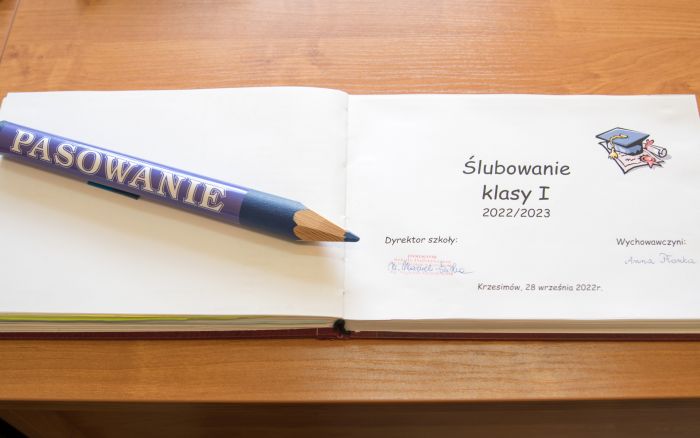 PASOWANIE
Ślubowanie
klasy I
2022/2023
Dyrektor szkoły:
Wychowawczyni:
Anna
Krzesimów, 28 września 2022r.